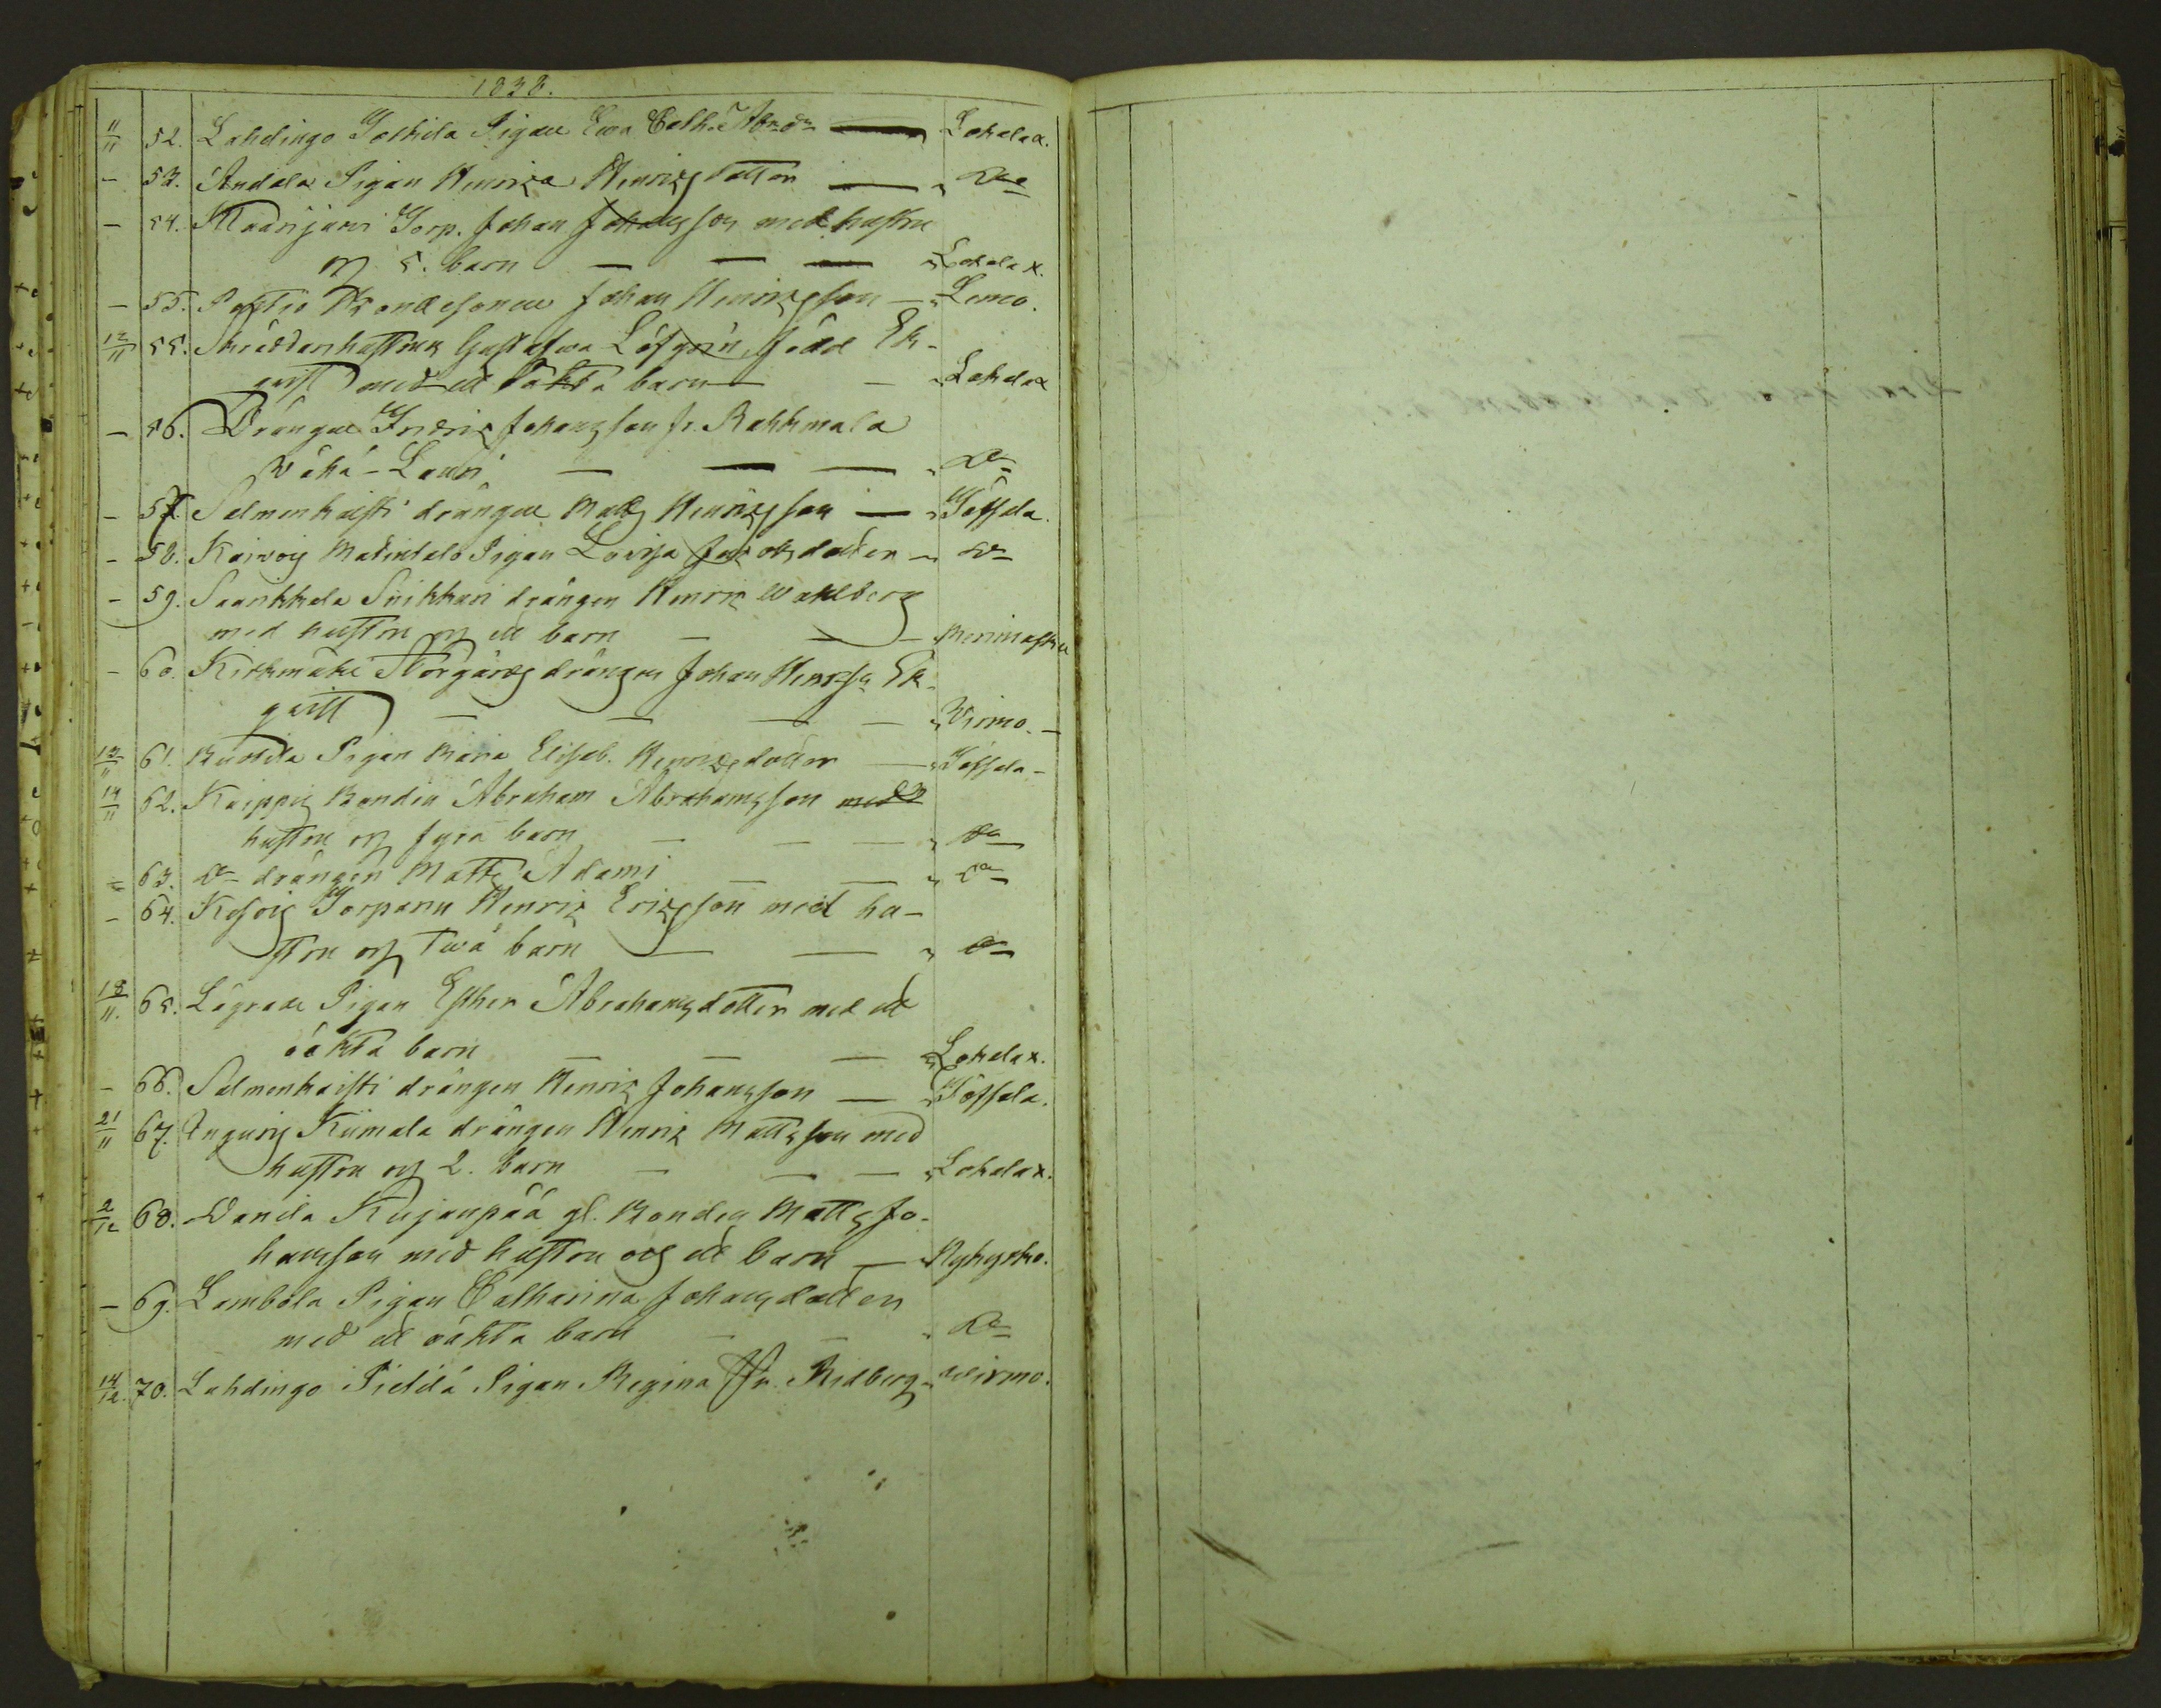 1838.
11/11 52. Lahdingo Poikila Pigan Ewa Cath. Abr.dr Lokalax.
- 53. Andala Pigan Henrica Henricsdotter " Do
- 54. Maarijarvi Torp. Johan Johansson med hustru
och 5. barn " Lokalax.
- 55. Bondesonen Johan Henricsson " Lemo.
12/11 55. Skräddarhustrun Gustafwa Löfgrén, född Ek-
qvist med ett oäkta barn " Lokalax
- 56. Drängen Fredric Johansson fr. Rahkmala
Wähä-Lauri " Do
- 57. Salmenhaisti drängen Matts Henricsson " Töfsala.
- 58. Kaivois Matintalo Pigan Lovisa Jacobsdotter " Do
- 59. Saarikkala Puikkari drängen Henric Wahlberg
med hustru och ett barn " Merimasku
- 60. Kirkmäki Storgårds drängen Johan Henrcsn Ek-
qvist " Wirmo.
13/11 61. Pigan Maria Elisab. Henricsdotter " Töfsala -
14/11 62. Kaippis Bonden Abraham Abrahamsson med
hustru och fyra barn " Do
- 63. Do drängen Matts Adami " Do
- 64. Torparen Henric Ericsson med hu-
stru och twå barn " Do
18/11. 65. Pigan Esther Abrahamsdotter med ett
oäkta barn " Lokalax.
- 66. Salmenhaisti drängen Henric Johansson " Töfsala.
21/11 67. Kiimala drängen Henric Mattsson med
hustru och 2. barn " Lokalax.
2/12 68. Danila Kujanpää gl. Bonden Matts Jo-
hansson med hustru och ett barn " Nykyrko.
- 69. Lambola Pigan Catharina Johansdotter
med ett oäkta barn " Do
14/12. 70. Lahdingo Pietilä Pigan Regina Fr. Ridberg " Wirmo.